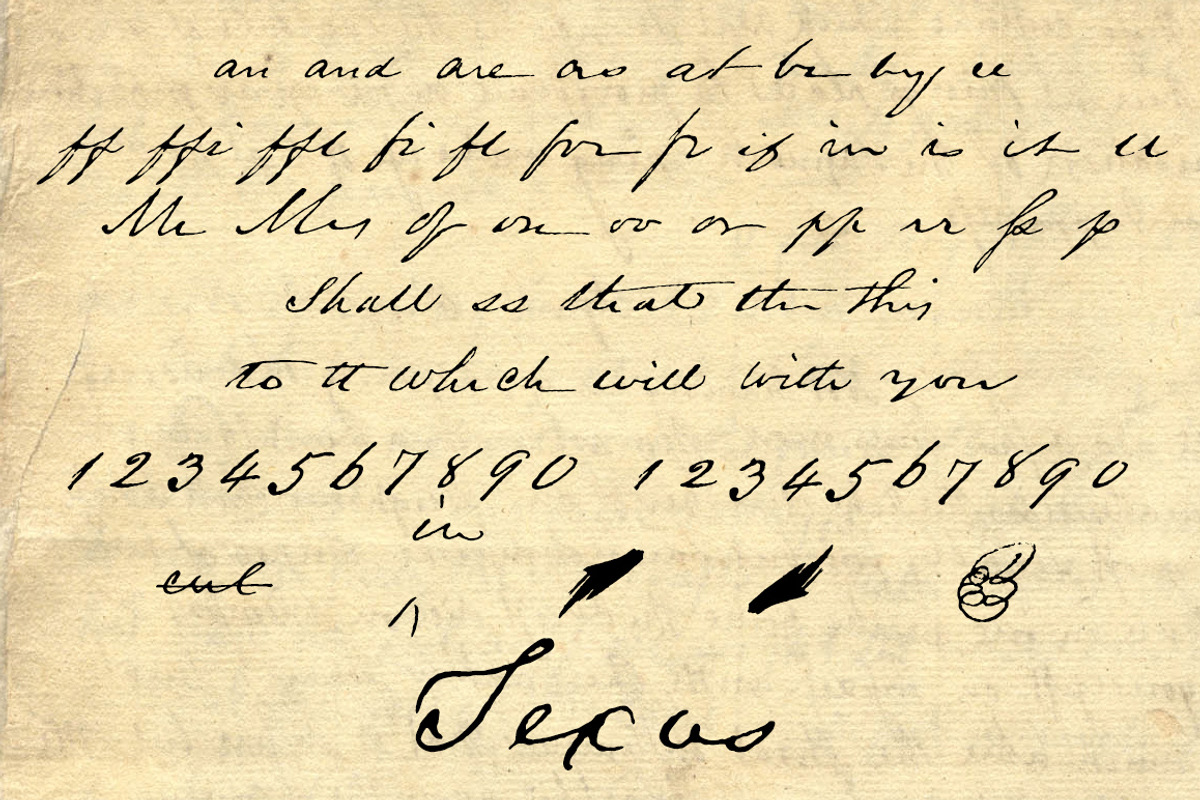 an and are as at be by ee
ff ffi ffl fi fl for fr if in is it ll
Mr Mrs of on oo or pp rr ſs p
Shall ss that the this
to tt which will with you
1234567890 1234567890
in
cut
Texas